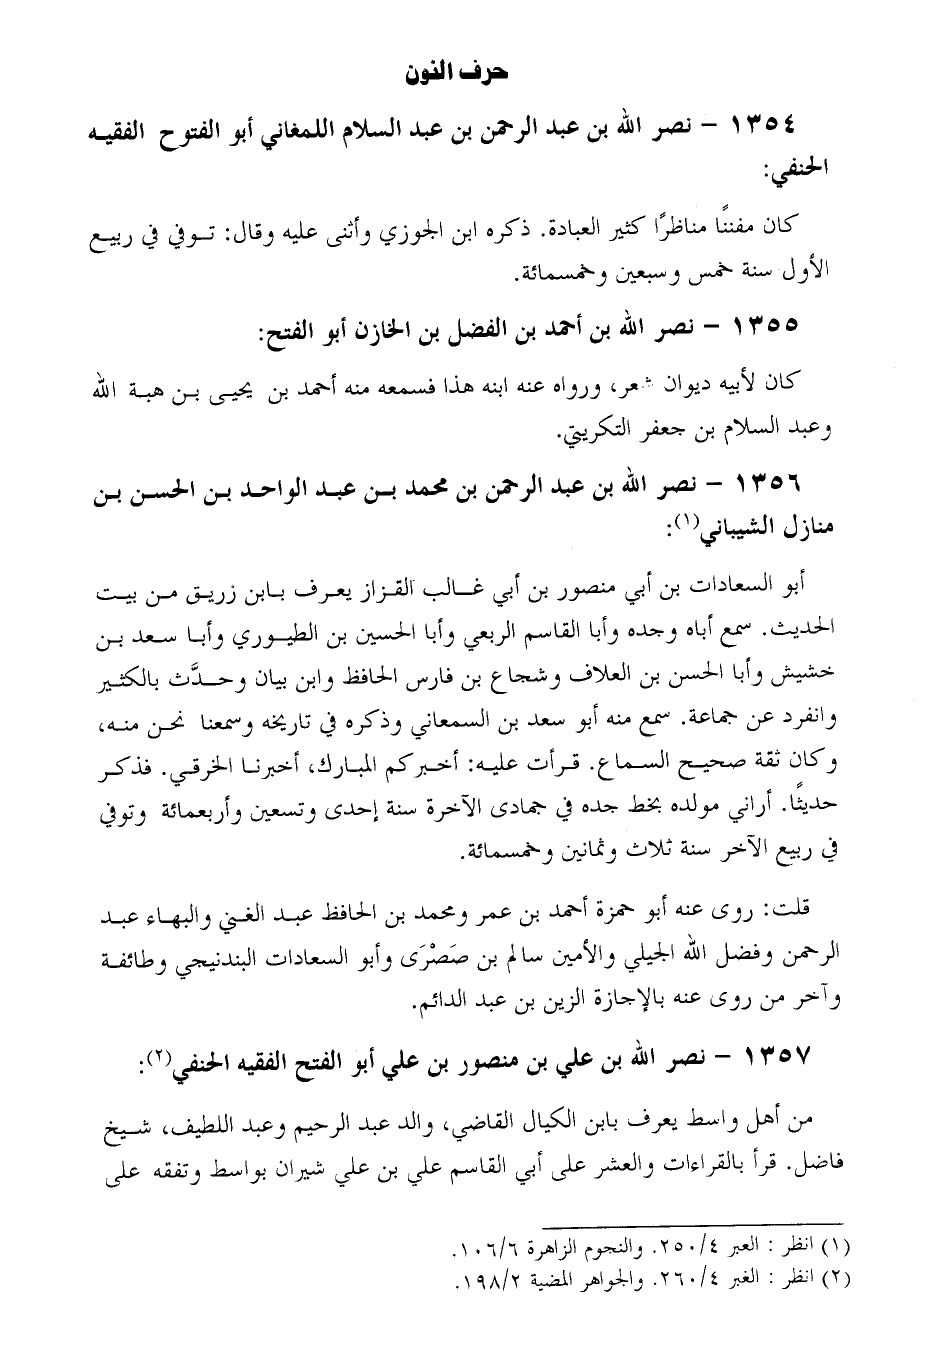 حرف النون
١٣٥٤ – نصر الله بن عبد الرحمن بن عبد السلام اللمغاني أبو الفتوح الفقيه
الحنفي:
كان مفننًا مناظرًا كثير العبادة. ذكره ابن الجوزي وأثنى عليه وقال: توفي في ربيع
الأول سنة خمس وسبعين وخمسمائة.
١٣٥٥ – نصر الله بن أحمد بن الفضل بن الخازن أبو الفتح:
كان لأبيه ديوان شعر، ورواه عنه ابنه هذا فسمعه منه أحمد بن يحيى بن هبة الله
وعبد السلام بن جعفر التكريتي.
١٣٥٦ – نصر الله بن عبد الرحمن بن محمد بن عبد الواحد بن الحسن بن
منازل الشيباني(١):
أبو السعادات بن أبي منصور بن أبي غالب القزاز يعرف بابن زريق من بيت
الحديث. سمع أباه وجده وأبا القاسم الربعي وأبا الحسين بن الطيوري وأبا سعد بن
خشيش وأبا الحسن بن العلاف وشجاع بن فارس الحافظ وابن بيان وحدَّث بالكثير
وانفرد عن جماعة. سمع منه أبو سعد بن السمعاني وذكره في تاريخه وسمعنا نحن منه،
وكان ثقة صحيح السماع. قرأت عليه: أخبركم المبارك، أخبرنا الخرقي. فذكر
حديثًا. أراني مولده بخط جده في جمادى الآخرة سنة إحدى وتسعين وأربعمائة وتوفي
في ربيع الآخر سنة ثلاث وثمانين وخمسمائة.
قلت: روى عنه أبو حمزة أحمد بن عمر ومحمد بن الحافظ عبد الغني والبهاء عبد
الرحمن وفضل الله الجيلي والأمين سالم بن صَصْرَى وأبو السعادات البندنيجي وطائفة
وآخر من روى عنه بالإجازة الزين بن عبد الدائم.
١٣٥٧ – نصر الله بن علي بن منصور بن علي أبو الفتح الفقيه الحنفي(٢):
من أهل واسط يعرف بابن الكيال القاضي، والد عبد الرحيم وعبد اللطيف، شيخ
فاضل. قرأ بالقراءات والعشر على أبي القاسم علي بن علي شيران بواسط وتفقه على
(١) انظر : العبر ٢٥٠/٤. والنجوم الزاهرة ١٠٦/٦.
(٢) انظر : الغبر ٢٦٠/٤. والجواهر المضية ١٩٨/٢.